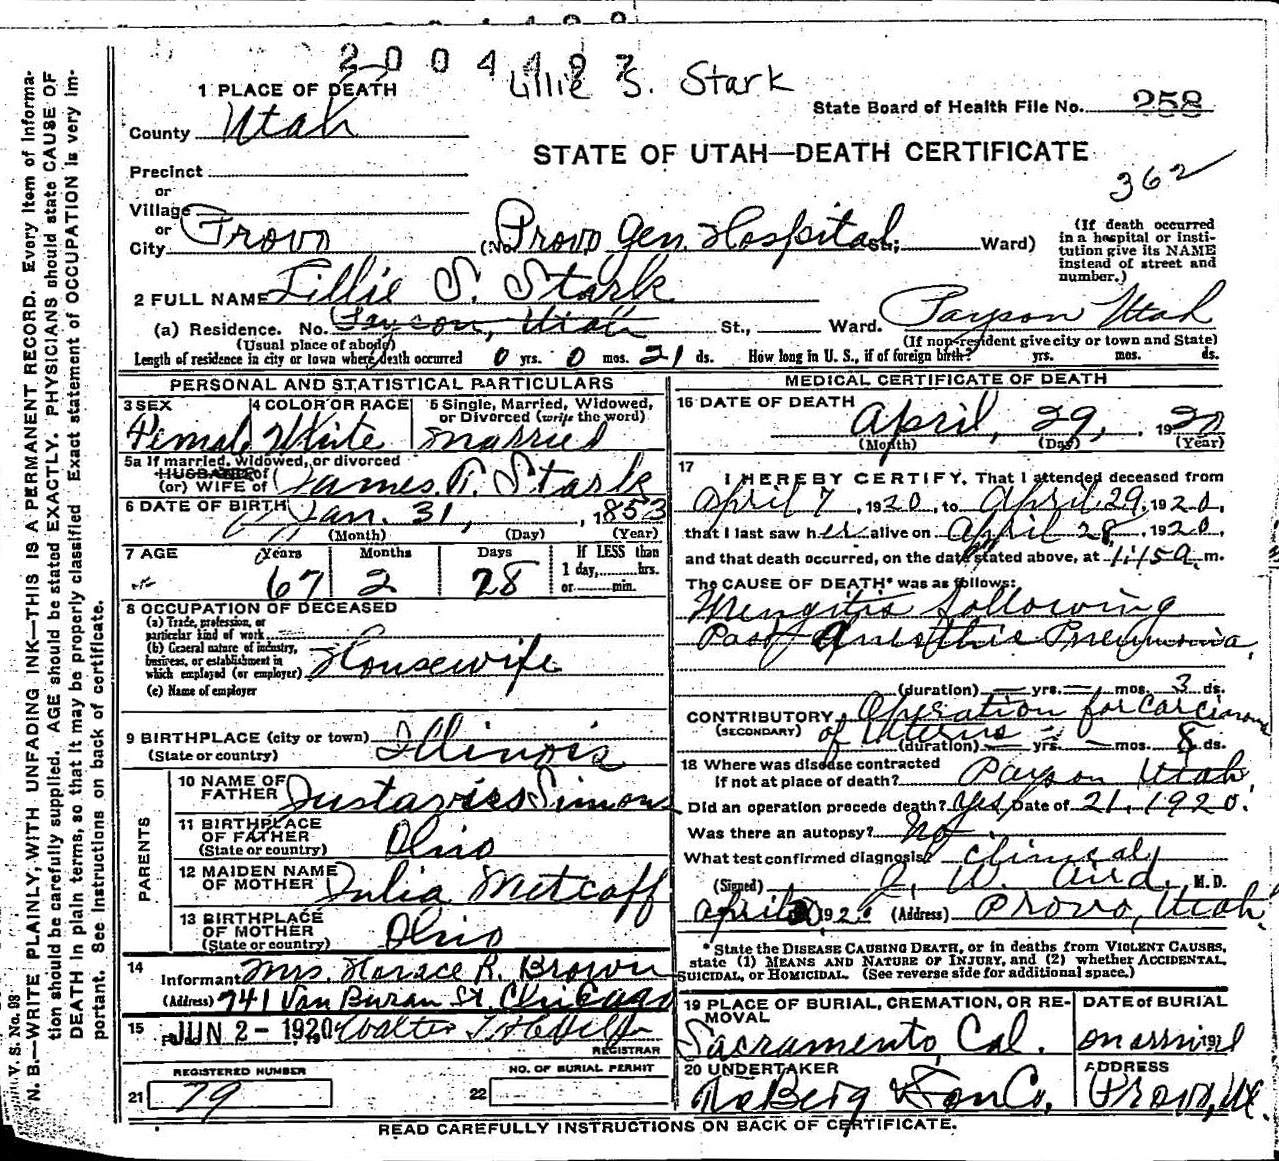 2004487
Lillie S. Stark
1 PLACE OF DEATH
State Board of Health File No. 258
County Utah
STATE OF UTAH—DEATH CERTIFICATE
362
Precinct
or
Village
or
City Provo (No. Provo Gen. Hospital St.; Ward)
(If death occurred in a hospital or institution give its NAME instead of street and number.)
2 FULL NAME Lillie S. Stark
(a) Residence. No. Payson, Utah St., Ward. Payson Utah
(Usual place of abode) (If non-resident give city or town and State)
Length of residence in city or town where death occurred 0 yrs. 0 mos. 21 ds. How long in U. S., if of foreign birth? yrs. mos. ds.
PERSONAL AND STATISTICAL PARTICULARS
3 SEX 4 COLOR OR RACE 5 Single, Married, Widowed, or Divorced (write the word)
Female White Married
5a If married, widowed, or divorced
HUSBAND of
(or) WIFE of James T. Stark
6 DATE OF BIRTH Jan. 31, 1853
(Month) (Day) (Year)
7 AGE Years Months Days If LESS than
67 2 28 1 day, hrs.
or min.
8 OCCUPATION OF DECEASED
(a) Trade, profession, or
particular kind of work
(b) General nature of industry,
business, or establishment in
which employed (or employer) Housewife
(c) Name of employer
9 BIRTHPLACE (city or town) Illinois
(State or country)
PARENTS
10 NAME OF FATHER Gustavus Simons
11 BIRTHPLACE OF FATHER Ohio
(State or country)
12 MAIDEN NAME OF MOTHER Julia Metcalf
13 BIRTHPLACE OF MOTHER Ohio
(State or country)
14
Informant Mrs. Horace R. Brown
(Address) 741 Van Buran St. Chicago
15 JUN 2 - 1920 Walter T.
REGISTRAR
REGISTERED NUMBER NO. OF BURIAL PERMIT
21 79 22
MEDICAL CERTIFICATE OF DEATH
16 DATE OF DEATH
April, 29, 1920
(Month) (Day) (Year)
17
I HEREBY CERTIFY, That I attended deceased from
April 7, 1920, to April 29, 1920,
that I last saw her alive on April 28, 1920,
and that death occurred, on the date stated above, at 1:15 a. m.
The CAUSE OF DEATH* was as follows:
Mengitis following
Post Anesthis Pneumonia,
(duration) — yrs. — mos. 3 ds.
CONTRIBUTORY Operation for Carcinoma
(SECONDARY) of Uterus
(duration) — yrs. — mos. 8 ds.
18 Where was disease contracted
if not at place of death? Payson Utah
Did an operation precede death? Yes, Date of 21, 1920.
Was there an autopsy? No.
What test confirmed diagnosis? Clinical
(Signed) J. W. Aird, M. D.
April 192 (Address) Provo, Utah.
* State the DISEASE CAUSING DEATH, or in deaths from VIOLENT CAUSES,
state (1) MEANS AND NATURE OF INJURY, and (2) whether ACCIDENTAL,
SUICIDAL, or HOMICIDAL. (See reverse side for additional space.)
19 PLACE OF BURIAL, CREMATION, OR REMOVAL DATE of BURIAL
Sacramento, Cal.
20 UNDERTAKER ADDRESS
Berg & Son Co. Provo, Ut.
READ CAREFULLY INSTRUCTIONS ON BACK OF CERTIFICATE.
V. S. No. 98
N. B.—WRITE PLAINLY, WITH UNFADING INK—THIS IS A PERMANENT RECORD. Every item of informa-
tion should be carefully supplied. AGE should be stated EXACTLY. PHYSICIANS should state CAUSE OF
DEATH in plain terms, so that it may be properly classified. Exact statement of OCCUPATION is very im-
portant. See instructions on back of certificate.